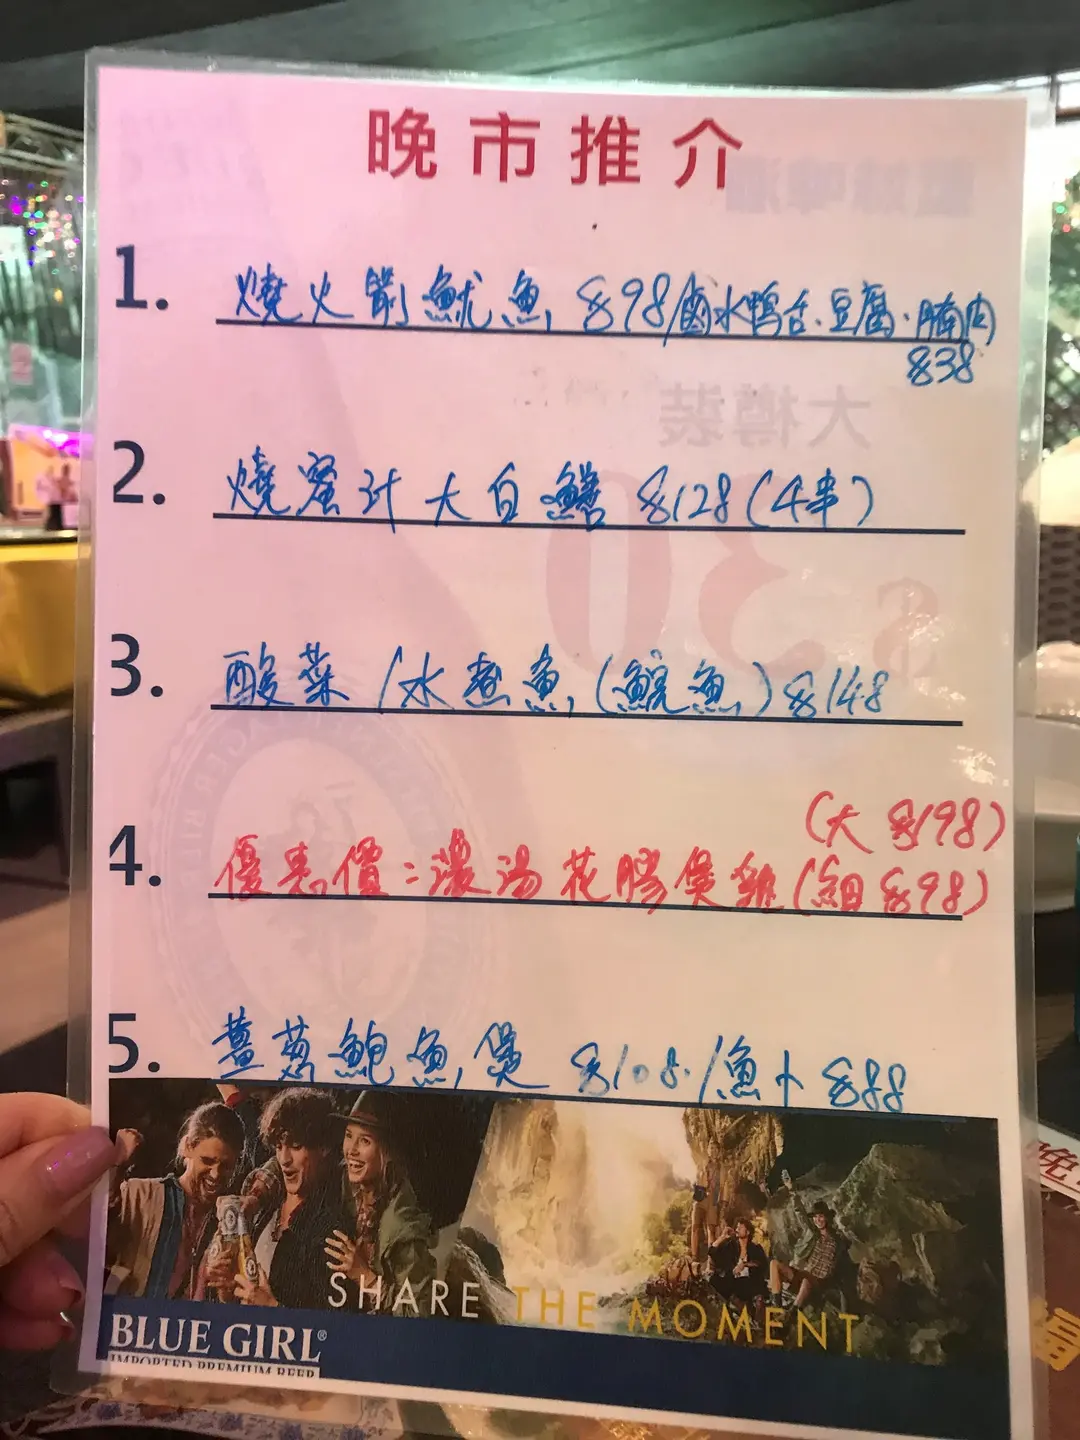 晚市推介
1. 燒火箭魷魚 $98/鹵水鴨舌、豆腐、腩肉
$38
2. 燒蜜汁大白鱔 $128(4串)
3. 酸菜/水煮魚(鯇魚)$148
(大 $198)
4. 優惠價:濃湯花膠煲雞(細 $98)
5. 薑葱鮑魚煲 $108·/魚卜 $88
SHARE THE MOMENT
BLUE GIRL®
IMPORTED PREMIUM BEER